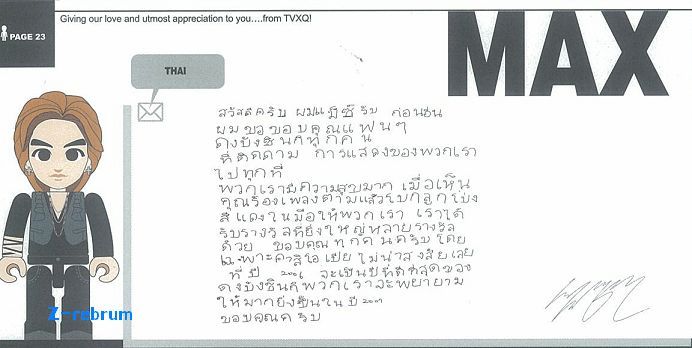 Giving our love and utmost appreciation to you....from TVXQ!
MAX
PAGE 23
THAI
สวัสดีครับ ผมแม็ซิรับ ก่อนอื่น
ผมขอขอบคุณแฟนๆ
ดงบังชินกิทุกคน
ที่ติดตาม การแสดงของพวกเรา
ไปทุกที่
พวกเรามีความสุขมาก เมื่อเห็น
คุณร้องเพลงตามแล้วโบกลูกโป่ง
สีแดงในมือให้พวกเรา เราได้
รับรางวัลที่ยิ่งใหญ่หลายรางวัล
ด้วย ขอบคุณทุกคนครับ โดย
เฉพาะคาสิโอเปีย ไม่น่าสงสัยเลย
ที่ปี จะเป็นปีที่ดีที่สุดของ
ดงบังชินกิ พวกเราจะพยายาม
ให้มากยิ่งขึ้นในปี
ขอบคุณครับ
Z-rebrum